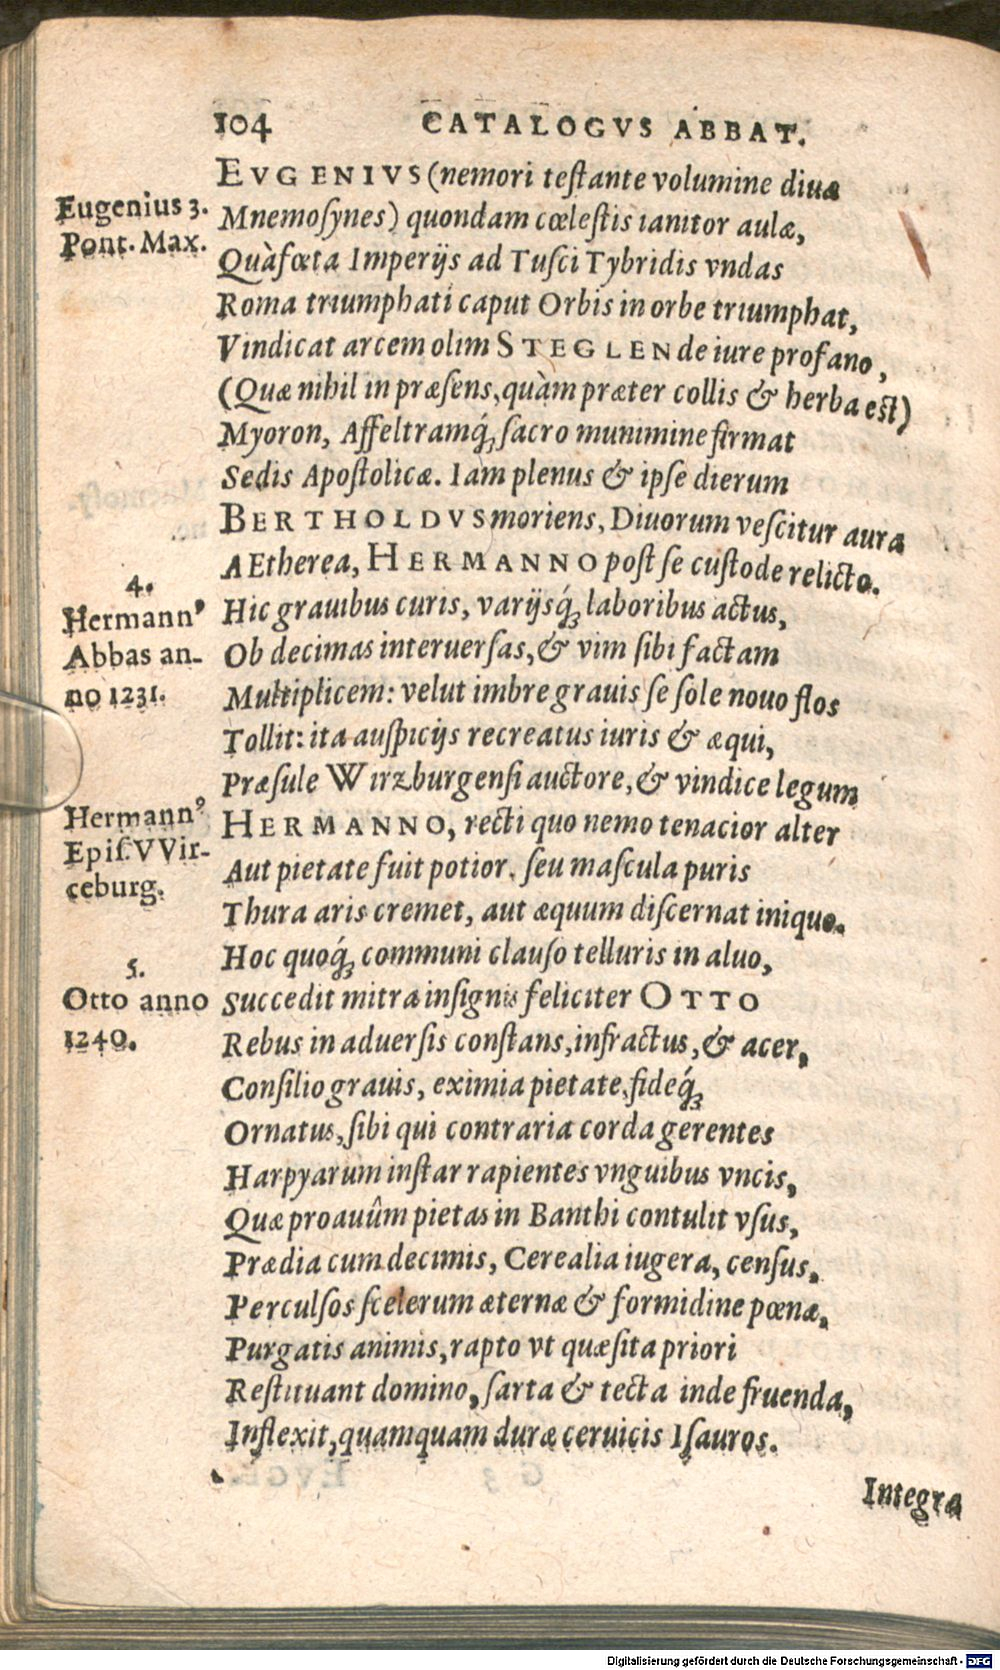 104 CATALOGVS ABBAT.
EVGENIVS (nemori teſtante volumine diuæ
Eugenius 3.
Pont. Max.
Mnemoſynes) quondam cœleſtis ianitor aulæ,
Quà fœta Imperijs ad Tuſci Tybridis vndas
Roma triumphati caput Orbis in orbe triumphat,
Vindicat arcem olim STEGLEN de iure profano,
(Quæ nihil in præſens, quàm præter collis & herba est)
Myoron, Affeltramq́; ſacro munimine firmat
Sedis Apoſtolicæ. Iam plenus & ipſe dierum
BERTHOLDVS moriens, Diuorum veſcitur aura
AEtherea, HERMANNO poſt ſe cuſtode relicto.
4.
Hermannꝰ
Abbas an-
no 1231.
Hic grauibus curis, varijsq́; laboribus actus,
Ob decimas interuerſas, & vim ſibi factam
Multiplicem: velut imbre grauis ſe ſole nouo flos
Tollit: ita auſpicijs recreatus iuris & æqui,
Præſule Wirzburgenſi auctore, & vindice legum
Hermannꝰ
Epiſ. VVir-
ceburg.
HERMANNO, recti quo nemo tenacior alter
Aut pietate fuit potior. ſeu maſcula puris
Thura aris cremet, aut æquum diſcernat iniquo.
Hoc quoq́; communi clauſo telluris in aluo,
5.
Otto anno
1240.
Succedit mitra inſignis feliciter OTTO
Rebus in aduerſis conſtans, infractus, & acer,
Conſilio grauis, eximia pietate, fideq́;
Ornatus, ſibi qui contraria corda gerentes
Harpyarum inſtar rapientes vnguibus vncis,
Quæ proauûm pietas in Banthi contulit vſus,
Prædia cum decimis, Cerealia iugera, cenſus,
Perculſos ſcelerum æternæ & formidine pœnæ,
Purgatis animis, rapto vt quæſita priori
Reſtituant domino, ſarta & tecta inde fruenda,
Inflexit, quamquam duræ ceruicis Iſauros.
Integra
Digitalisierung gefördert durch die Deutsche Forschungsgemeinschaft - DFG